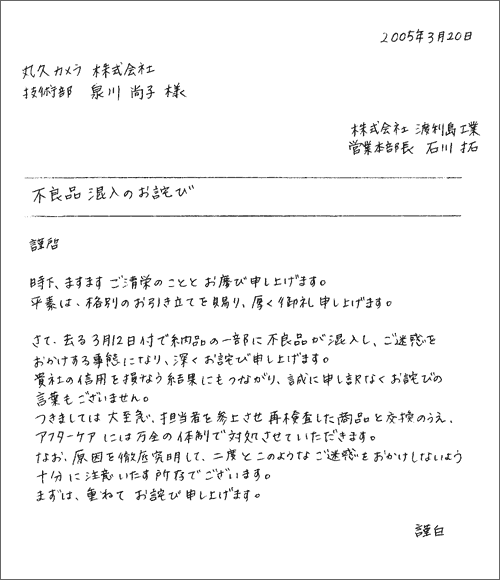 2005年3月20日
丸久カメラ 株式会社
技術部 泉川 尚子 様
株式会社 渡利島工業
営業本部長 石川 拓
不良品混入のお詫び
謹啓
時下、ますます ご清栄のこととお慶び申し上げます。
平素は、格別のお引き立てを賜り、厚く御礼申し上げます。
さて、去る3月12日付で納品の一部に不良品が混入し、ご迷惑を
おかけする事態になり、深くお詫び申し上げます。
貴社の信用を損なう結果にもつながり、誠に申し訳なくお詫びの
言葉もございません。
つきましては大至急、担当者を参上させ再検査した商品と交換のうえ、
アフターケアには万全の体制で対処させていただきます。
なお、原因を徹底究明して、二度とこのようなご迷惑をおかけしないよう
十分に注意いたす所存でございます。
まずは、重ねてお詫び申し上げます。
謹白